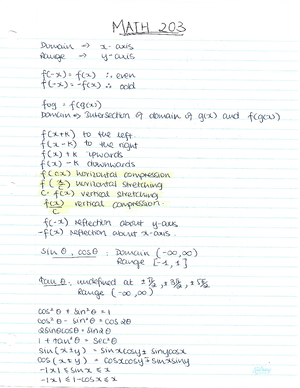 MATH 203
Domain → x-axis
Range → y-axis
f(-x) = f(x) ∴ even
f(-x) = -f(x) ∴ odd
fog = f(g(x))
Domain ⇒ Intersection of domain of g(x) and f(g(x))
f(x+k) to the left
f(x-k) to the right
f(x)+k upwards
f(x)-k downwards
f(cx) horizontal compression
f(x/c) horizontal stretching
c·f(x) vertical stretching
f(x)/c vertical compression
f(-x) reflection about y-axis
-f(x) reflection about x-axis
sin θ, cos θ : Domain (-∞,∞)
Range [-1,1]
tan θ, undefined at ± π/2, ± 3π/2, ± 5π/2
Range (-∞,∞)
cos²θ + sin²θ = 1
cos²θ - sin²θ = cos 2θ
2sinθcosθ = sin2θ
1 + tan²θ = sec²θ
sin(x±y) = sinxcosy ± sinycosx
cos(x±y) = cosxcosy ∓ sinxsiny
-|x| ≤ sin x ≤ x
-|x| ≤ 1-cosx ≤ x